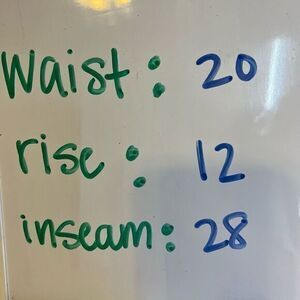 waist: 20
rise: 12
inseam: 28